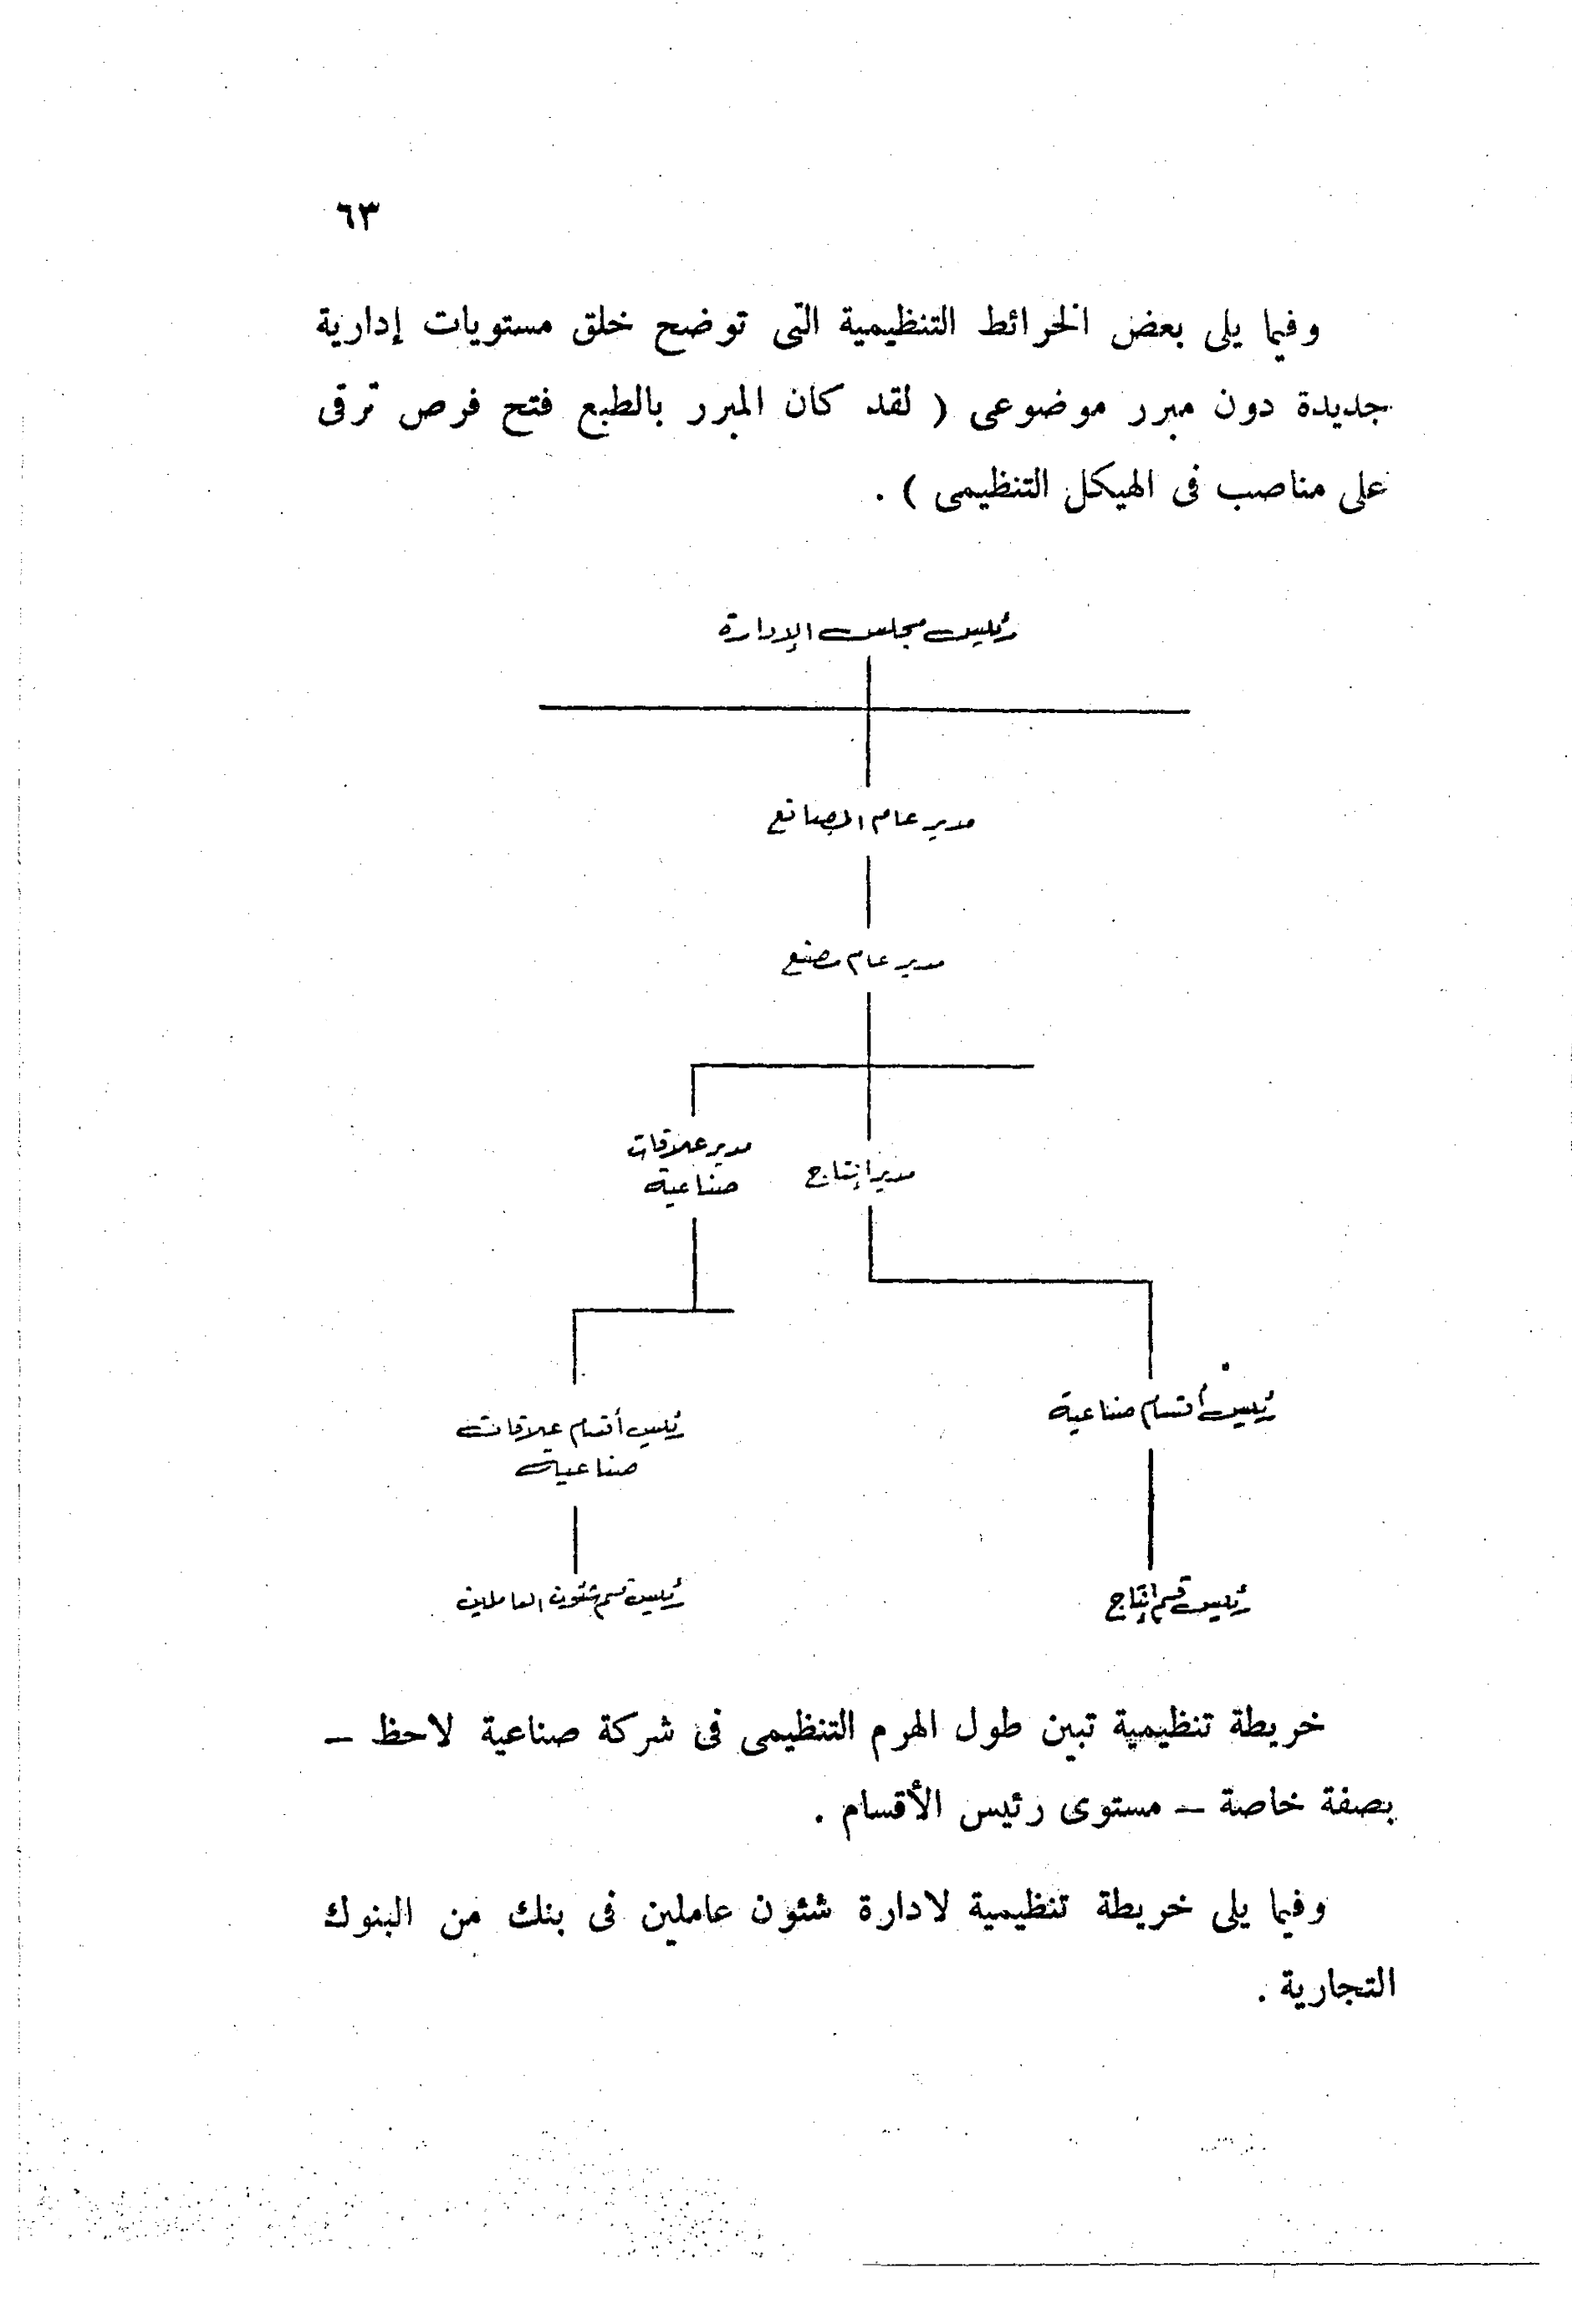 ٦٣
وفيما يلى بعض الخرائط التنظيمية التى توضح خلق مستويات إدارية
جديدة دون مبرر موضوعى ( لقد كان المبرر بالطبع فتح فرص ترقى
على مناصب فى الهيكل التنظيمى ) .
رئيس مجلس الإدارة
مدير عام المصانع
مدير عام مصنع
مدير إنتاج
مدير علاقات
صناعية
رئيس أقسام صناعية
رئيس أقسام علاقات
صناعية
رئيس قسم إنتاج
رئيس قسم شئون العاملين
خريطة تنظيمية تبين طول الهرم التنظيمى فى شركة صناعية لاحظ –
بصفة خاصة – مستوى رئيس الأقسام .
وفيما يلى خريطة تنظيمية لادارة شئون عاملين فى بنك من البنوك
التجارية .